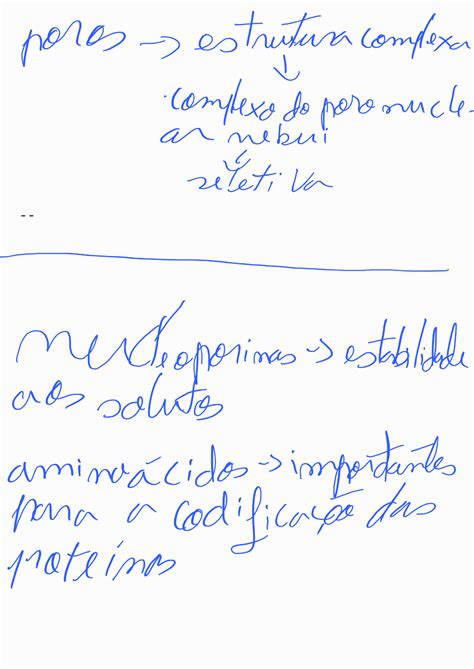 poros → estrutura complexa
↓
complexo do poro nucle-
ar
↓
seletiva
--
nucleoporinas → estabilidade
aos solutos
aminoácidos → importantes
para a codificação das
proteínas